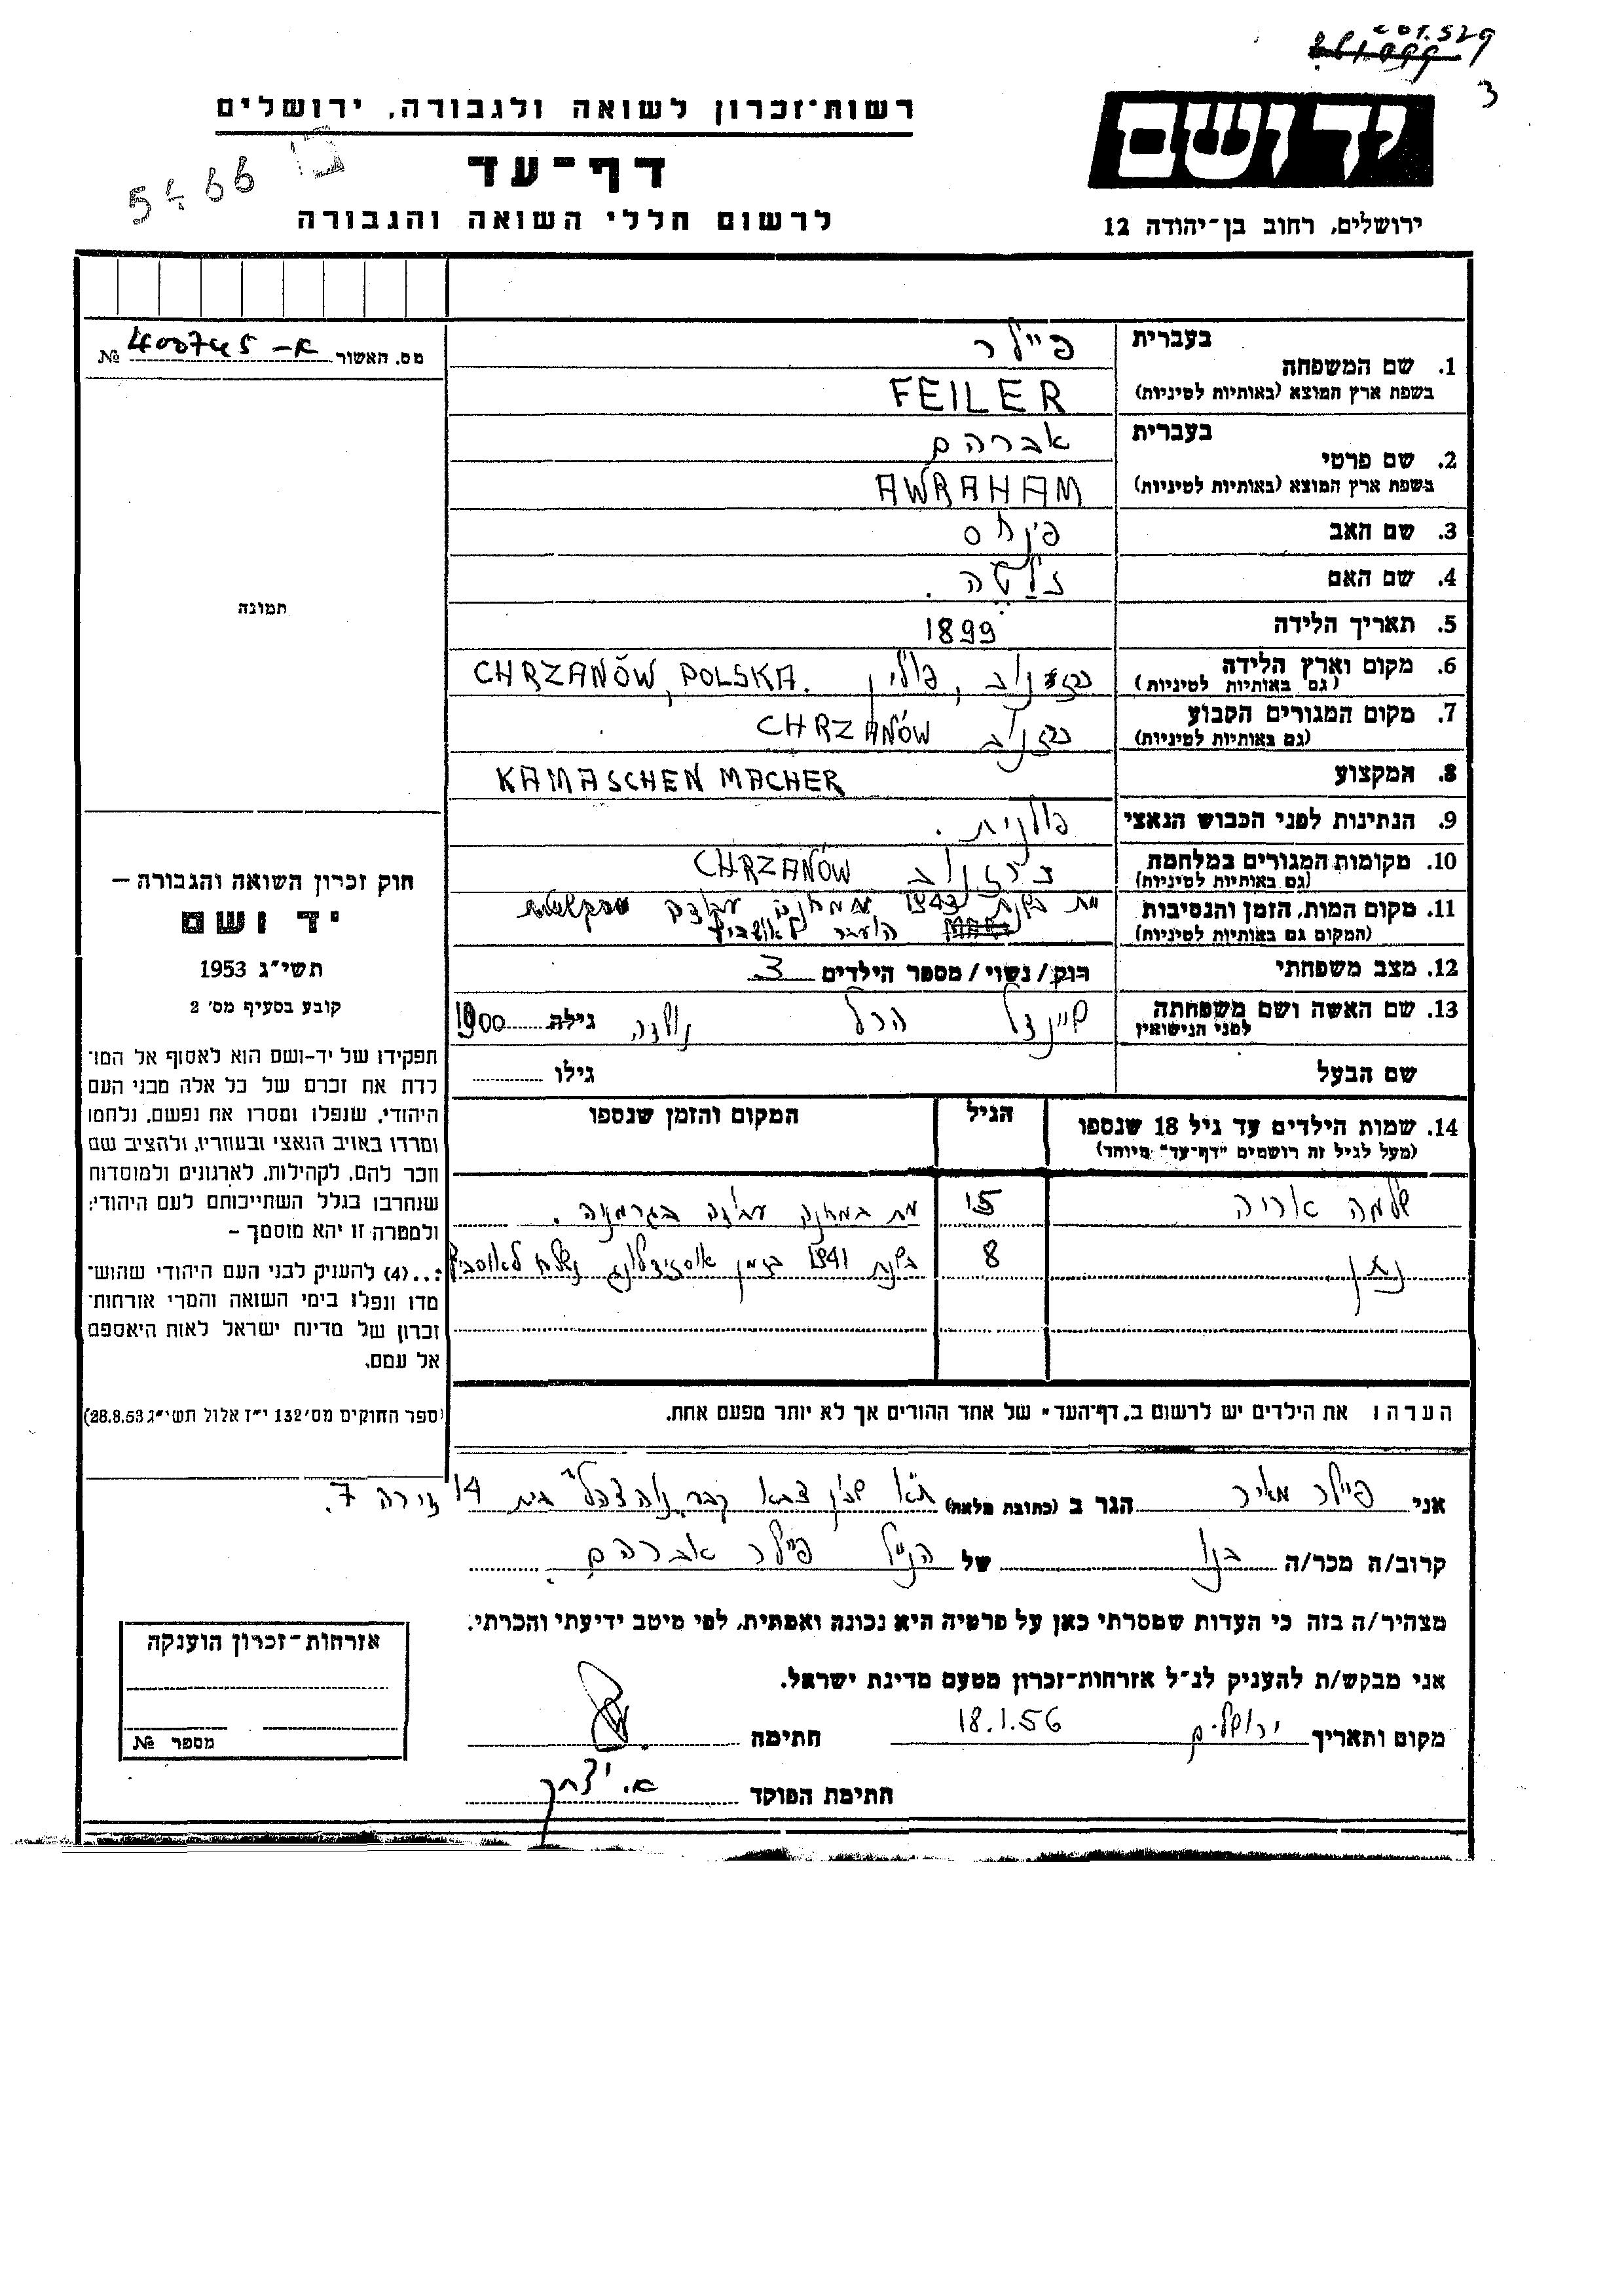 201.529
3
יד ושם
ירושלים, רחוב בן-יהודה 12
רשות-זכרון לשואה ולגבורה, ירושלים
דף-עד
לרשום חללי השואה והגבורה
מס. האשור 400745 -א №
תמונה
חוק זכרון השואה והגבורה –
יד ושם
תשי״ג 1953
קובע בסעיף מס׳ 2
תפקידו של יד-ושם הוא לאסוף אל המו־
לדת את זכרם של כל אלה מבני העם
היהודי, שנפלו ומסרו את נפשם, נלחמו
ומרדו באויב הנאצי ובעוזריו, ולהציב שם
וזכר להם, לקהילות, לארגונים ולמוסדות
שנחרבו בגלל השתייכותם לעם היהודי;
ולמטרה זו יהא מוסמך –
...(4) להעניק לבני העם היהודי שהוש־
מדו ונפלו בימי השואה והמרי אזרחות־
זכרון של מדינת ישראל לאות היאספם
אל עמם.
(ספר החוקים מס׳ 132 י״ז אלול תשי״ג 28.8.53)
בעברית פיילר
1. שם המשפחה
בשפת ארץ המוצא (באותיות לטיניות) FEILER
בעברית אברהם
2. שם פרטי
בשפת ארץ המוצא (באותיות לטיניות) AWRAHAM
3. שם האב פינחס
4. שם האם זלטה.
5. תאריך הלידה 1899
6. מקום וארץ הלידה , פולין CHRZANÓW, POLSKA.
(גם באותיות לטיניות)
7. מקום המגורים הקבוע כרזנוב CHRZANÓW
(גם באותיות לטיניות)
8. המקצוע KAMASCHEN MACHER
9. הנתינות לפני הכבוש הנאצי פולנית.
10. מקומות המגורים במלחמה CHRZANÓW
(גם באותיות לטיניות)
11. מקום המות, הזמן והנסיבות מת בשנת 1943
(המקום גם באותיות לטיניות) הועבר לאושביץ
12. מצב משפחתי רוק/נשוי/מספר הילדים 3
13. שם האשה ושם משפחתה שיינדל הרל נולדה גילה 1900
לפני הנישואין
שם הבעל גילו
14. שמות הילדים עד גיל 18 שנספו הגיל המקום והזמן שנספו
(מעל לגיל זה רושמים "דף-עד" מיוחד)
שלמה אריה 15 מת במחנה עבודה בגרמניה.
נתן 8 בשנת 1941 בזמן נשלח לאוסביץ
הערה: את הילדים יש לרשום ב„דף-העד" של אחד ההורים אך לא יותר מפעם אחת.
אני פיילר מאיר הגר ב (כתובת מלאה) ת״א שכון צבא קבע נוה צה״ל בית 14 דירה 7.
קרוב/ה מכר/ה בנו של הנ״ל פיילר אברהם
מצהיר/ה בזה כי העדות שמסרתי כאן על פרטיה היא נכונה ואמתית, לפי מיטב ידיעתי והכרתי.
אני מבקש/ת להעניק לנ״ל אזרחות-זכרון מטעם מדינת ישראל.
מקום ותאריך ירושלים 18.1.56 חתימה
חתימת הפוקד א. יצחק
אזרחות-זכרון הוענקה
מספר №